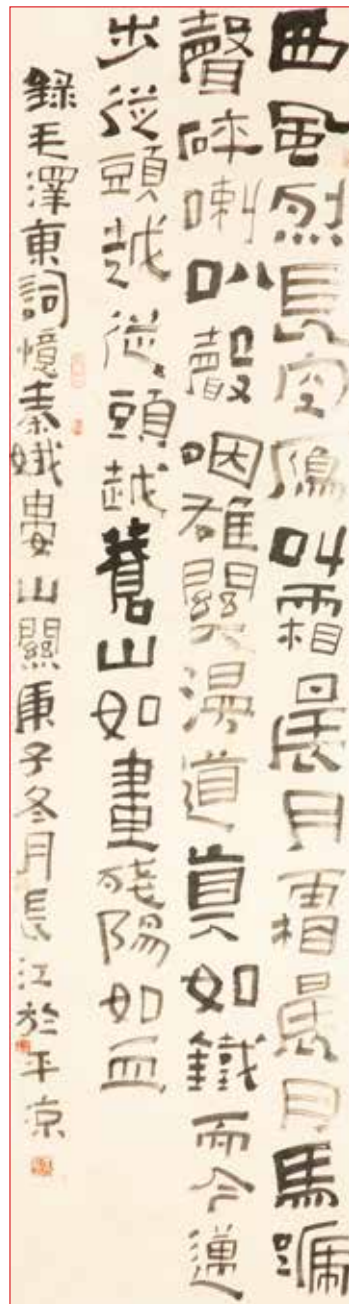 西風烈長空鴈叫霜晨月霜晨月馬蹏
聲碎喇叭聲咽雄關漫道真如鐵而今邁
步從頭越從頭越蒼山如畫殘陽如血
錄毛澤東詞憶秦娥婁山關庚子冬月長江於平凉